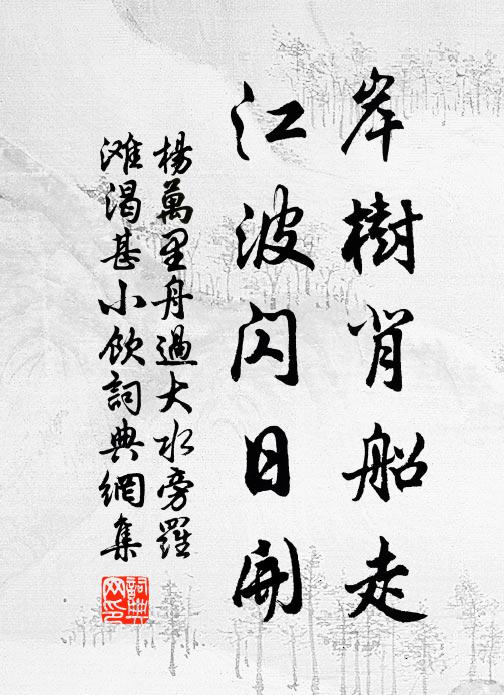 岸樹背船走
江波閃日開
楊萬里舟過大水旁羅
滩渴甚小飲詞典網集
詞典网印